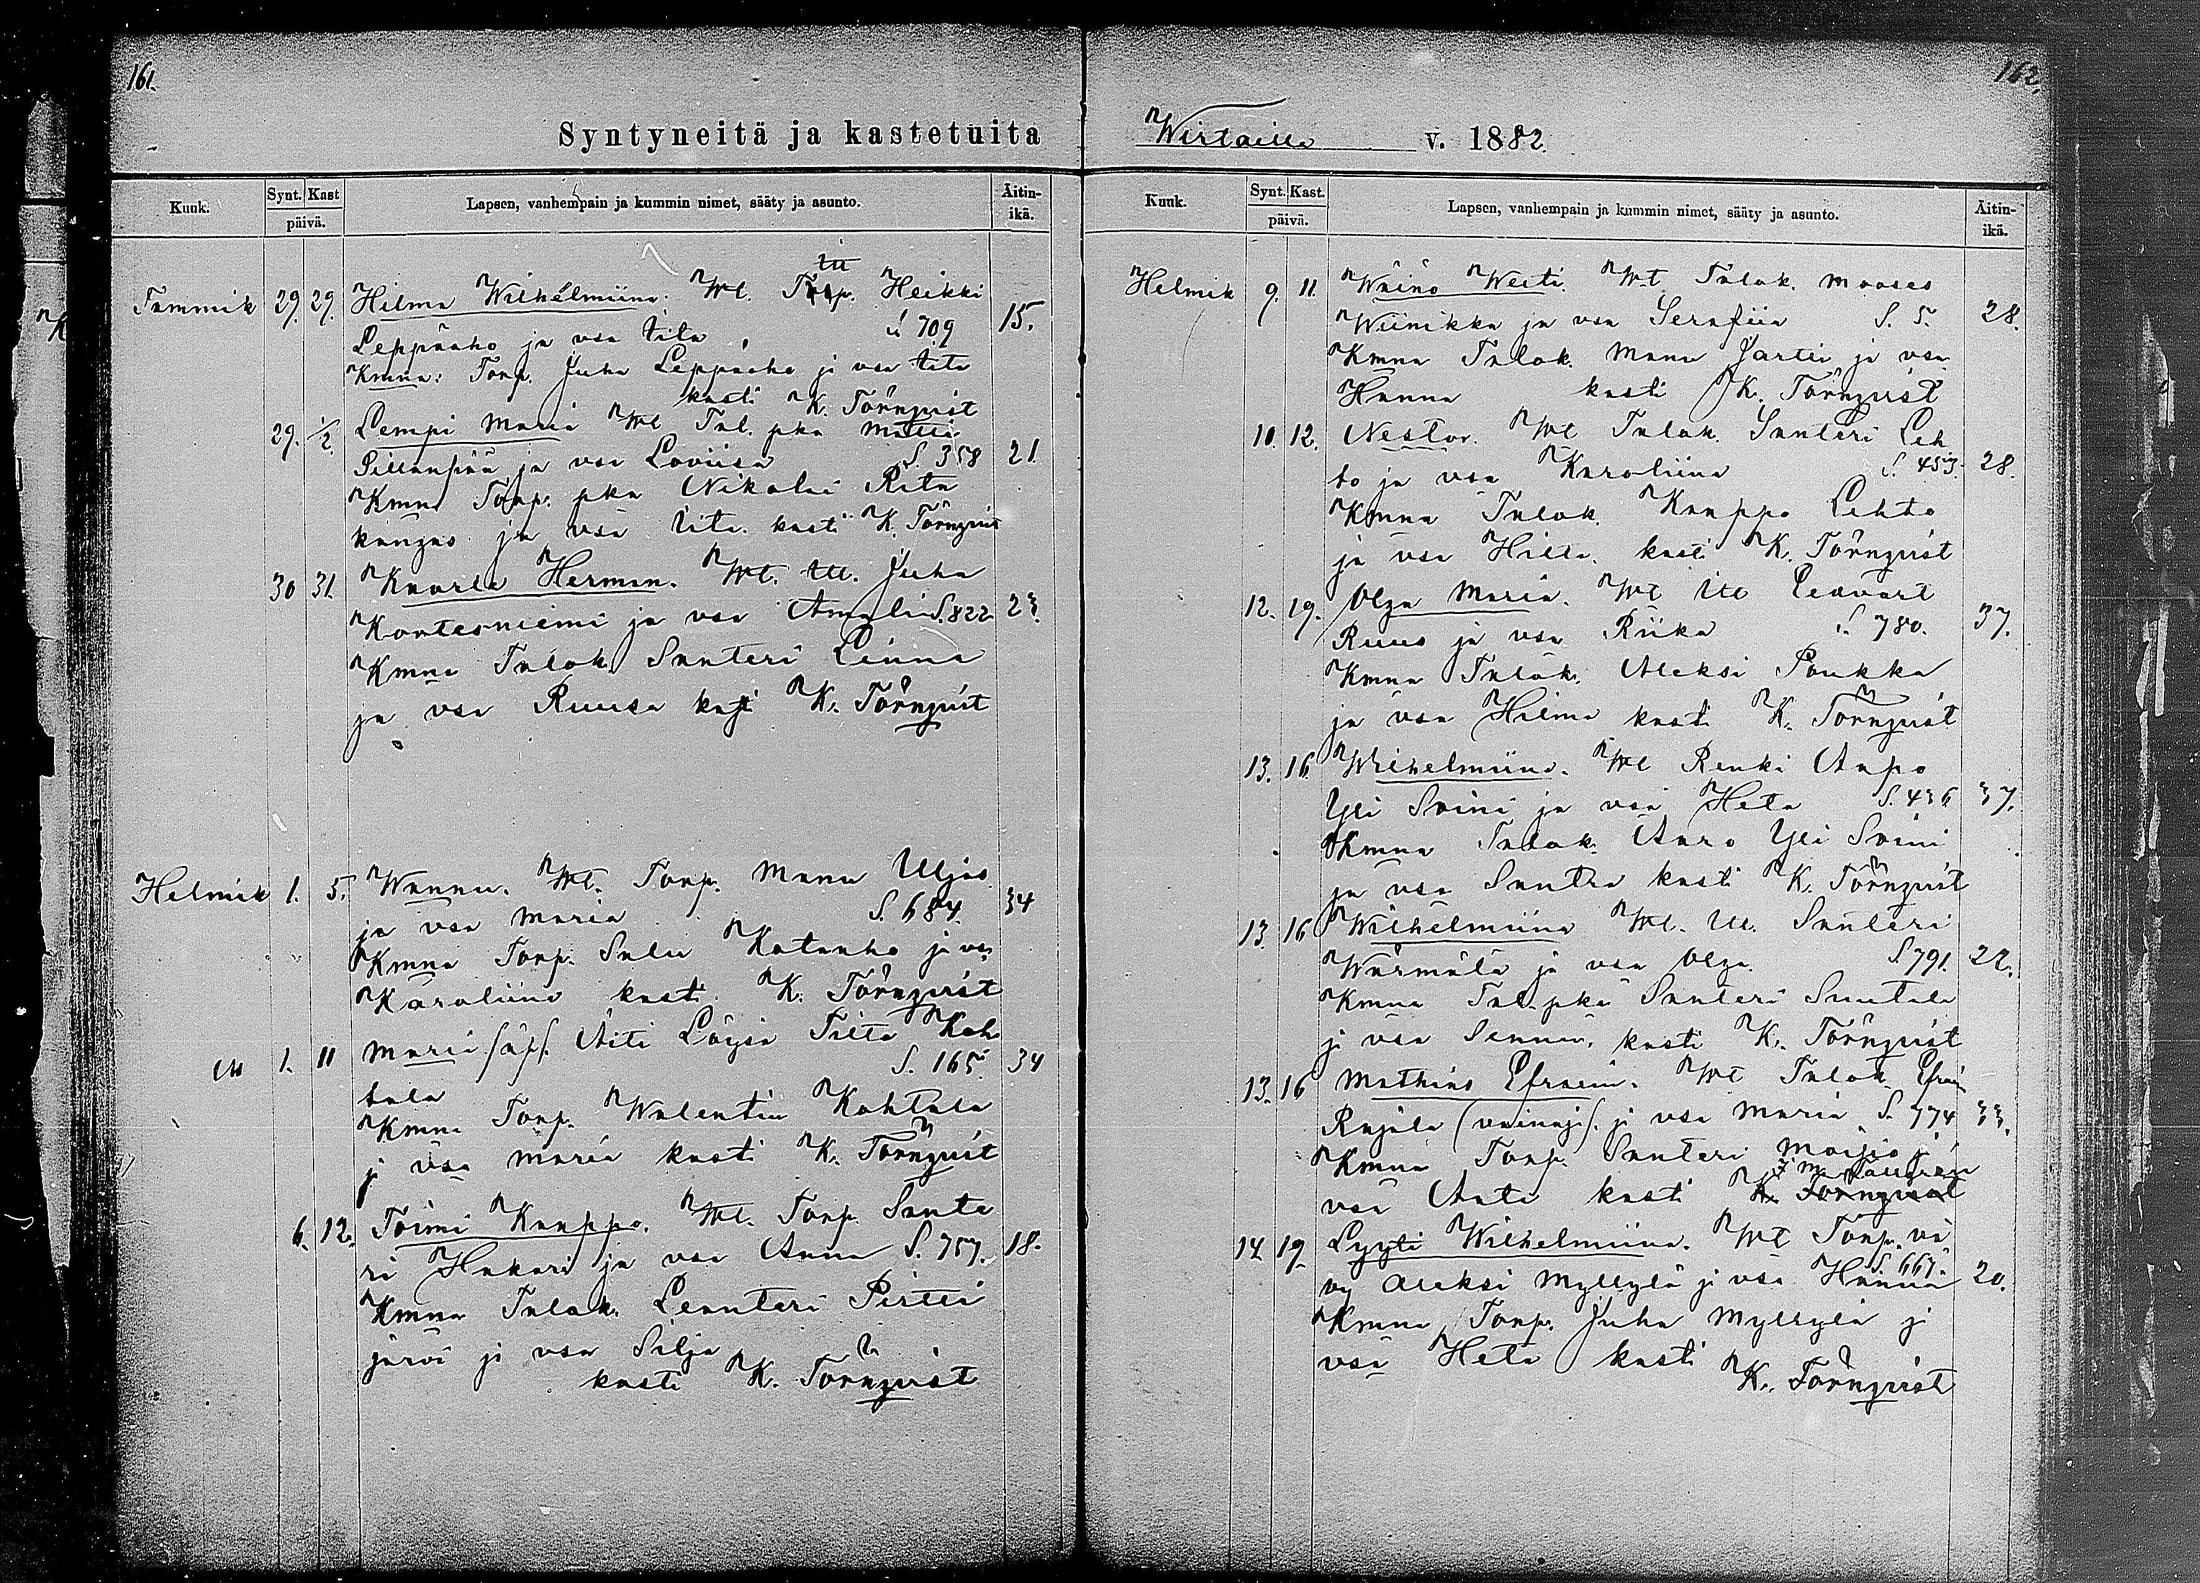 161.
Syntyneitä ja kastetuita
Kuuk.
Synt. Kast
päivä.
Lapsen, vanhempain ja kummin nimet, sääty ja asunto.
Äitin-
ikä.
Tammik 29. 29. Hilma Wilhelmiina. Wt. Heikki
Leppäaho ja vsa Tita S. 709 15.
Kmna: Torp. Juha Leppäaho ja vsa
kasti K. Törnqvist
29. 1/2. Lempi Maria Wt Tal. pka Matti
Sillanpää ja vsa Loviisa S. 358 21.
Kmna Torp. pka Nikolai Rita
kangas ja vsa kasti K. Törnqvist
30 31. Kaarlo Herman. Wt. Itl. Juha
Kontesniemi ja vsa Amali S. 822 23.
Kmna Talok Santeri Linna
ja vsa Ruusa kasti K. Törnqvist
Helmik 1. 5. Wannu. Wt. Torp. Manu Uljas
ja vsa Maria S. 684. 34
Kmna Torp. Salu Kataaho ja vsa
Karoliina kasti K. Törnqvist
1. 11 Maria (äp). Äiti Löysä Tilta Koh
tala S. 165. 34
Kmna Torp. Walentin Kohtala
j vsa Maria kasti K. Törnqvist
6. 12. Toimi Kaappo. Wt. Torp. Sante
ri Hakari ja vsa Anna S. 757. 18.
Kmna Talok. Leanteri Pirtti
järvi ja vsa Silja
kasti K. Törnqvist
162.
Wirtailla v. 1882.
Kuuk.
Synt. Kast.
päivä.
Lapsen, vanhempain ja kummin nimet, sääty ja asunto.
Äitin-
ikä.
Helmik 9. 11. Wäinö Werti. Wt Talok. Mooses
Wiinikka ja vsa Serafiia S. 5. 28.
Kmna Talok. Manu Jartti ja vsa
Hanna kasti K. Törnqvist
10. 12. Nestor. Wt Talok. Santeri Leh
to ja vsa Karoliina S. 453. 28.
Kmna Talok. Kaappo Lehto
ja vsa Hilta. kasti K. Törnqvist
12. 19. Olga Maria. Wt Itl Eedvart
Ruus ja vsa Riika S. 780. 37.
Kmna Talok. Aleksi Poukka
ja vsa Hilma kasti K. Törnqvist
13. 16. Wilhelmiina. Wt Renki Aapo
Yli Soini ja vsa Heta S. 436 37.
Kmna Talok. Aaro Yli Soini
ja vsa Santra kasti K. Törnqvist
13. 16 Wilhelmiina Wt. Itl. Santeri
Wärmälä ja vsa Olga. S. 791. 22.
Kmna Tal. pka Santeri Suutala
j vsa Senna. kasti K. Törnqvist
13. 16 Mathias Efraim. Wt Talok. Efraim
Rajala (vainaja). j vsa Maria S. 774 33.
Kmna Torp. Santeri j
vsa kasti K. Törnqvist
14. 19. Lyyti Wilhelmiina. Wt Torp. vä
vy Aleksi Myllylä j vsa Hanna S. 667. 20.
Kmna Torp. Juha Myllylä j
vsa Heta kasti
K. Törnqvist